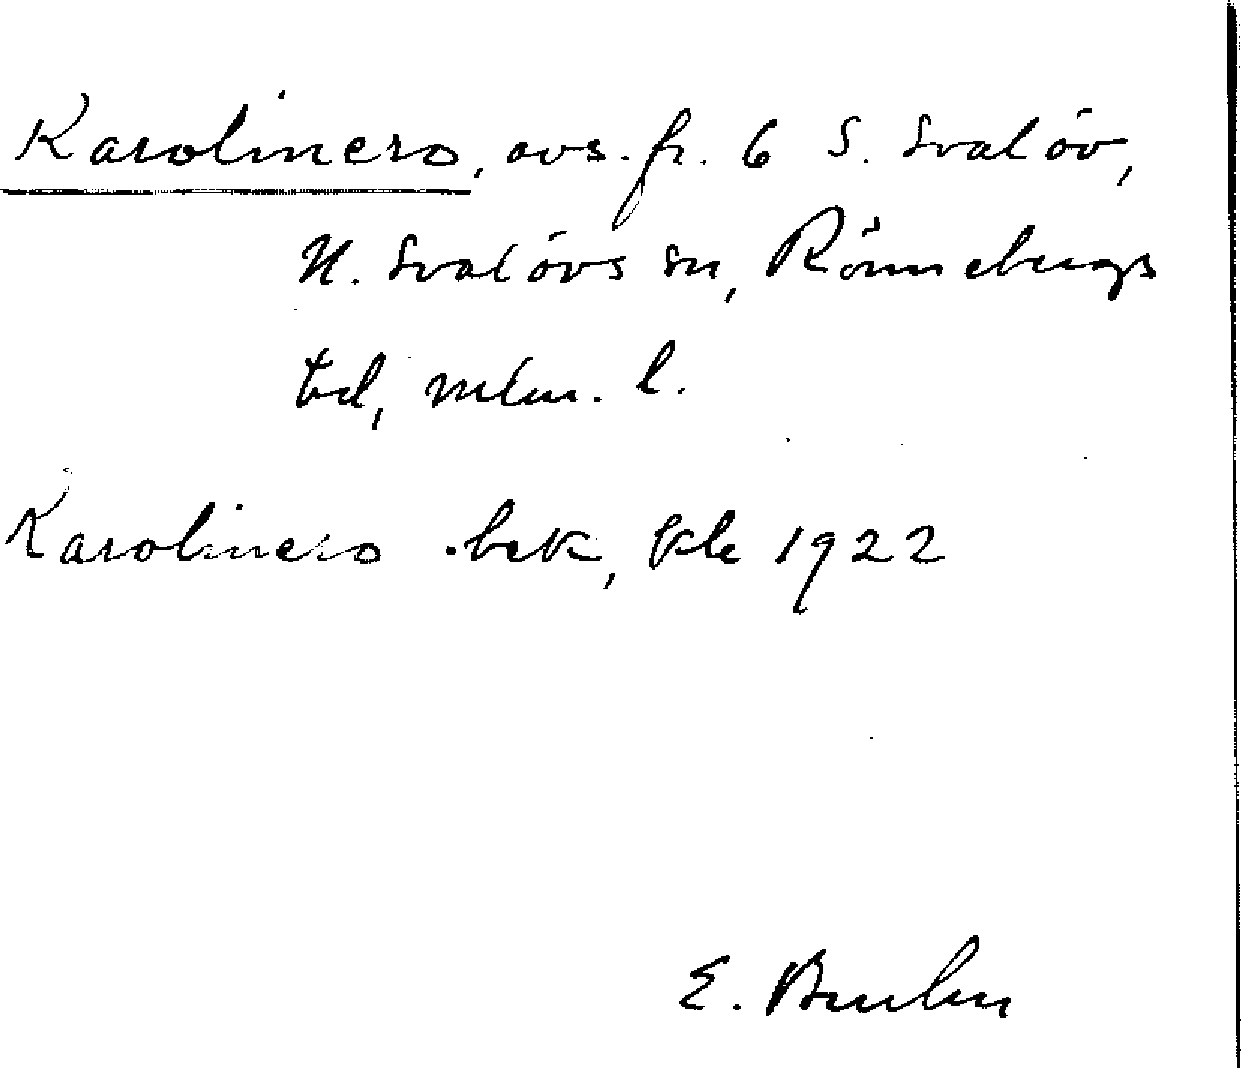 Karolinero, avs. fr. 6 S. Svalöv,
N. Svalövs sn, Rönnebergs
hd, Mlm. l.
Karolinero .bek, Jrb 1922
E.